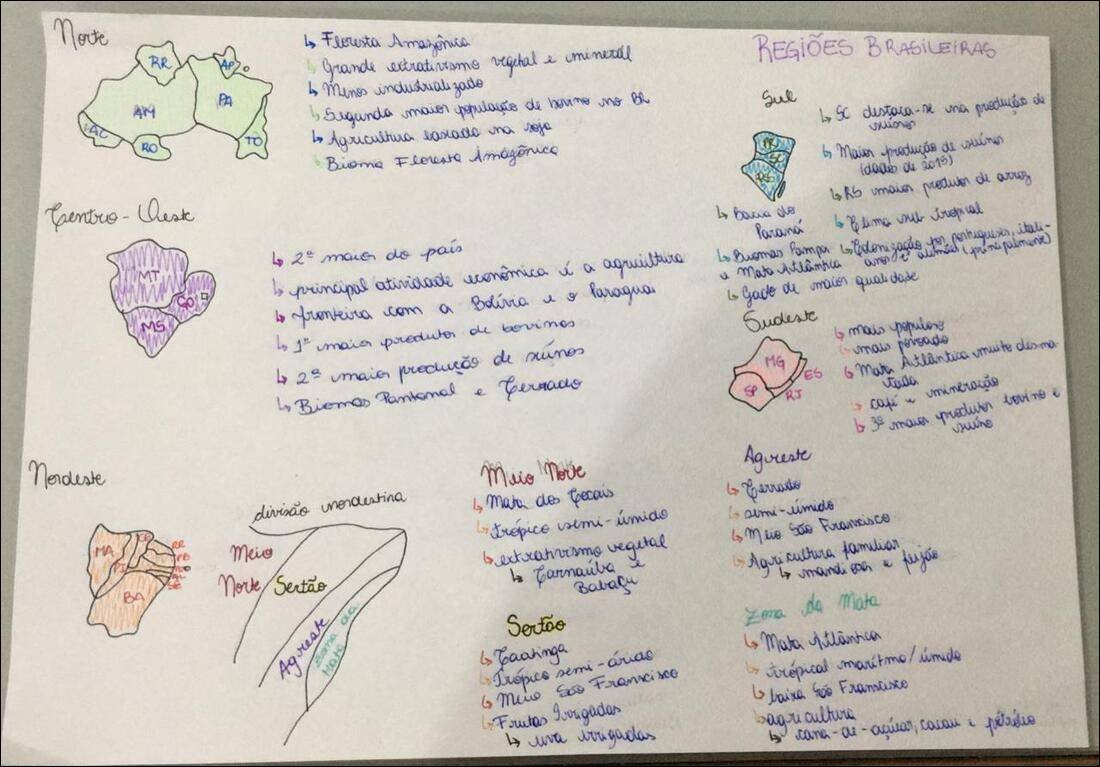 REGIÕES BRASILEIRAS
Norte
RR
AP
AM
PA
AC
RO
TO
↳ Floresta Amazônica
↳ Grande extrativismo vegetal e mineral
↳ Menos industrializado
↳ Segunda maior população de bovino no BR
↳ Agricultura baseada na soja
↳ Bioma Floresta Amazônica
Centro-Oeste
MT
GO
MS
↳ 2ª maior do país
↳ principal atividade econômica é a agricultura
↳ fronteira com a Bolívia e o Paraguai
↳ 1º maior produtor de bovinos
↳ 2ª maior produção de suínos
↳ Biomas Pantanal e Cerrado
Sul
PR
SC
RS
↳ SC destaca-se na produção de
suínos
↳ Maior produção de suínos
(dados de 2019)
↳ RS maior produtor de arroz
↳ Clima sub tropical
↳ Colonização por portugueses, itali-
anos e alemães (principalmente)
↳ Bacia do
Paraná
↳ Biomas Pampa
e Mata Atlântica
↳ Gado de maior qualidade
Sudeste
MG
SP
ES
RJ
↳ mais populoso
↳ mais povoado
↳ Mata Atlântica muito desma-
tada
↳ café e mineração
↳ 3º maior produtor bovino e
suíno
Nordeste
MA
PI
CE
BA
PB
AL
SE
divisão nordestina
Meio
Norte
Sertão
Agreste
Zona da
Mata
Meio Norte
↳ Mata dos Cocais
↳ trópico semi-úmido
↳ extrativismo vegetal
↳ Carnaúba e
Babaçu
Sertão
↳ Caatinga
↳ Trópico semi-árido
↳ Meio São Francisco
↳ Frutas Irrigadas
↳ uva irrigadas
Agreste
↳ Cerrado
↳ semi-úmido
↳ Meio São Francisco
↳ Agricultura familiar
↳ mandioca e feijão
Zona da Mata
↳ Mata Atlântica
↳ trópical marítmo/úmido
↳ baixa São Francisco
↳ agricultura
↳ cana-de-açúcar, cacau e petróleo